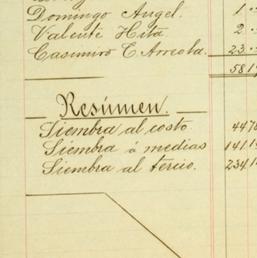 Domingo Angel. 1
Valente Hita 2
Casimiro C. Arreola. 23
581
Resúmen.
Siembra al costo 447
Siembra á medias 1411
Siembra al tercio. 234